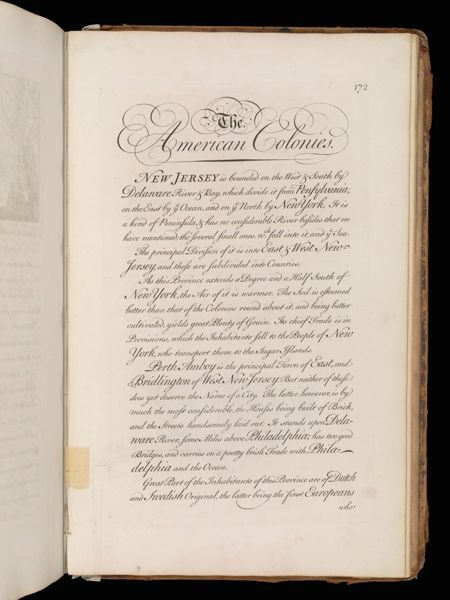 172
The
American Colonies.
NEW JERSEY is bounded on the West & South by
Delaware River & Bay, which divide it from Pensylvania;
on the East by yͤ Ocean, and on yͤ North by New York. It is
a kind of Peninsula, & has no considerable River besides that we
have mentioned, tho' several small ones, wᶜʰ fall into it, and yͤ Sea.
The principal Division of it is into East & West New-
Jersey, and these are subdivided into Counties.
As this Province extends a Degree and a Half South of
New York, the Air of it is warmer. The Soil is esteemed
better than that of the Colonies round about it, and being better
cultivated, yields great Plenty of Grain. Its chief Trade is in
Provisions, which the Inhabitants sell to the People of New
York, who transport them to the Sugar Islands.
Perth Amboy is the principal Town of East, and
Bridlington of West New Jersey: But neither of these
does yet deserve the Name of a City. The latter, however, is by
much the most considerable, the Houses being built of Brick,
and the Streets handsomely laid out. It stands upon Dela-
ware River, some Miles above Philadelphia; has two good
Bridges, and carries on a pretty brisk Trade with Phila-
delphia and the Ocean.
Great Part of the Inhabitants of this Province are of Dutch
and Swedish Original, the latter being the first Europeans
who